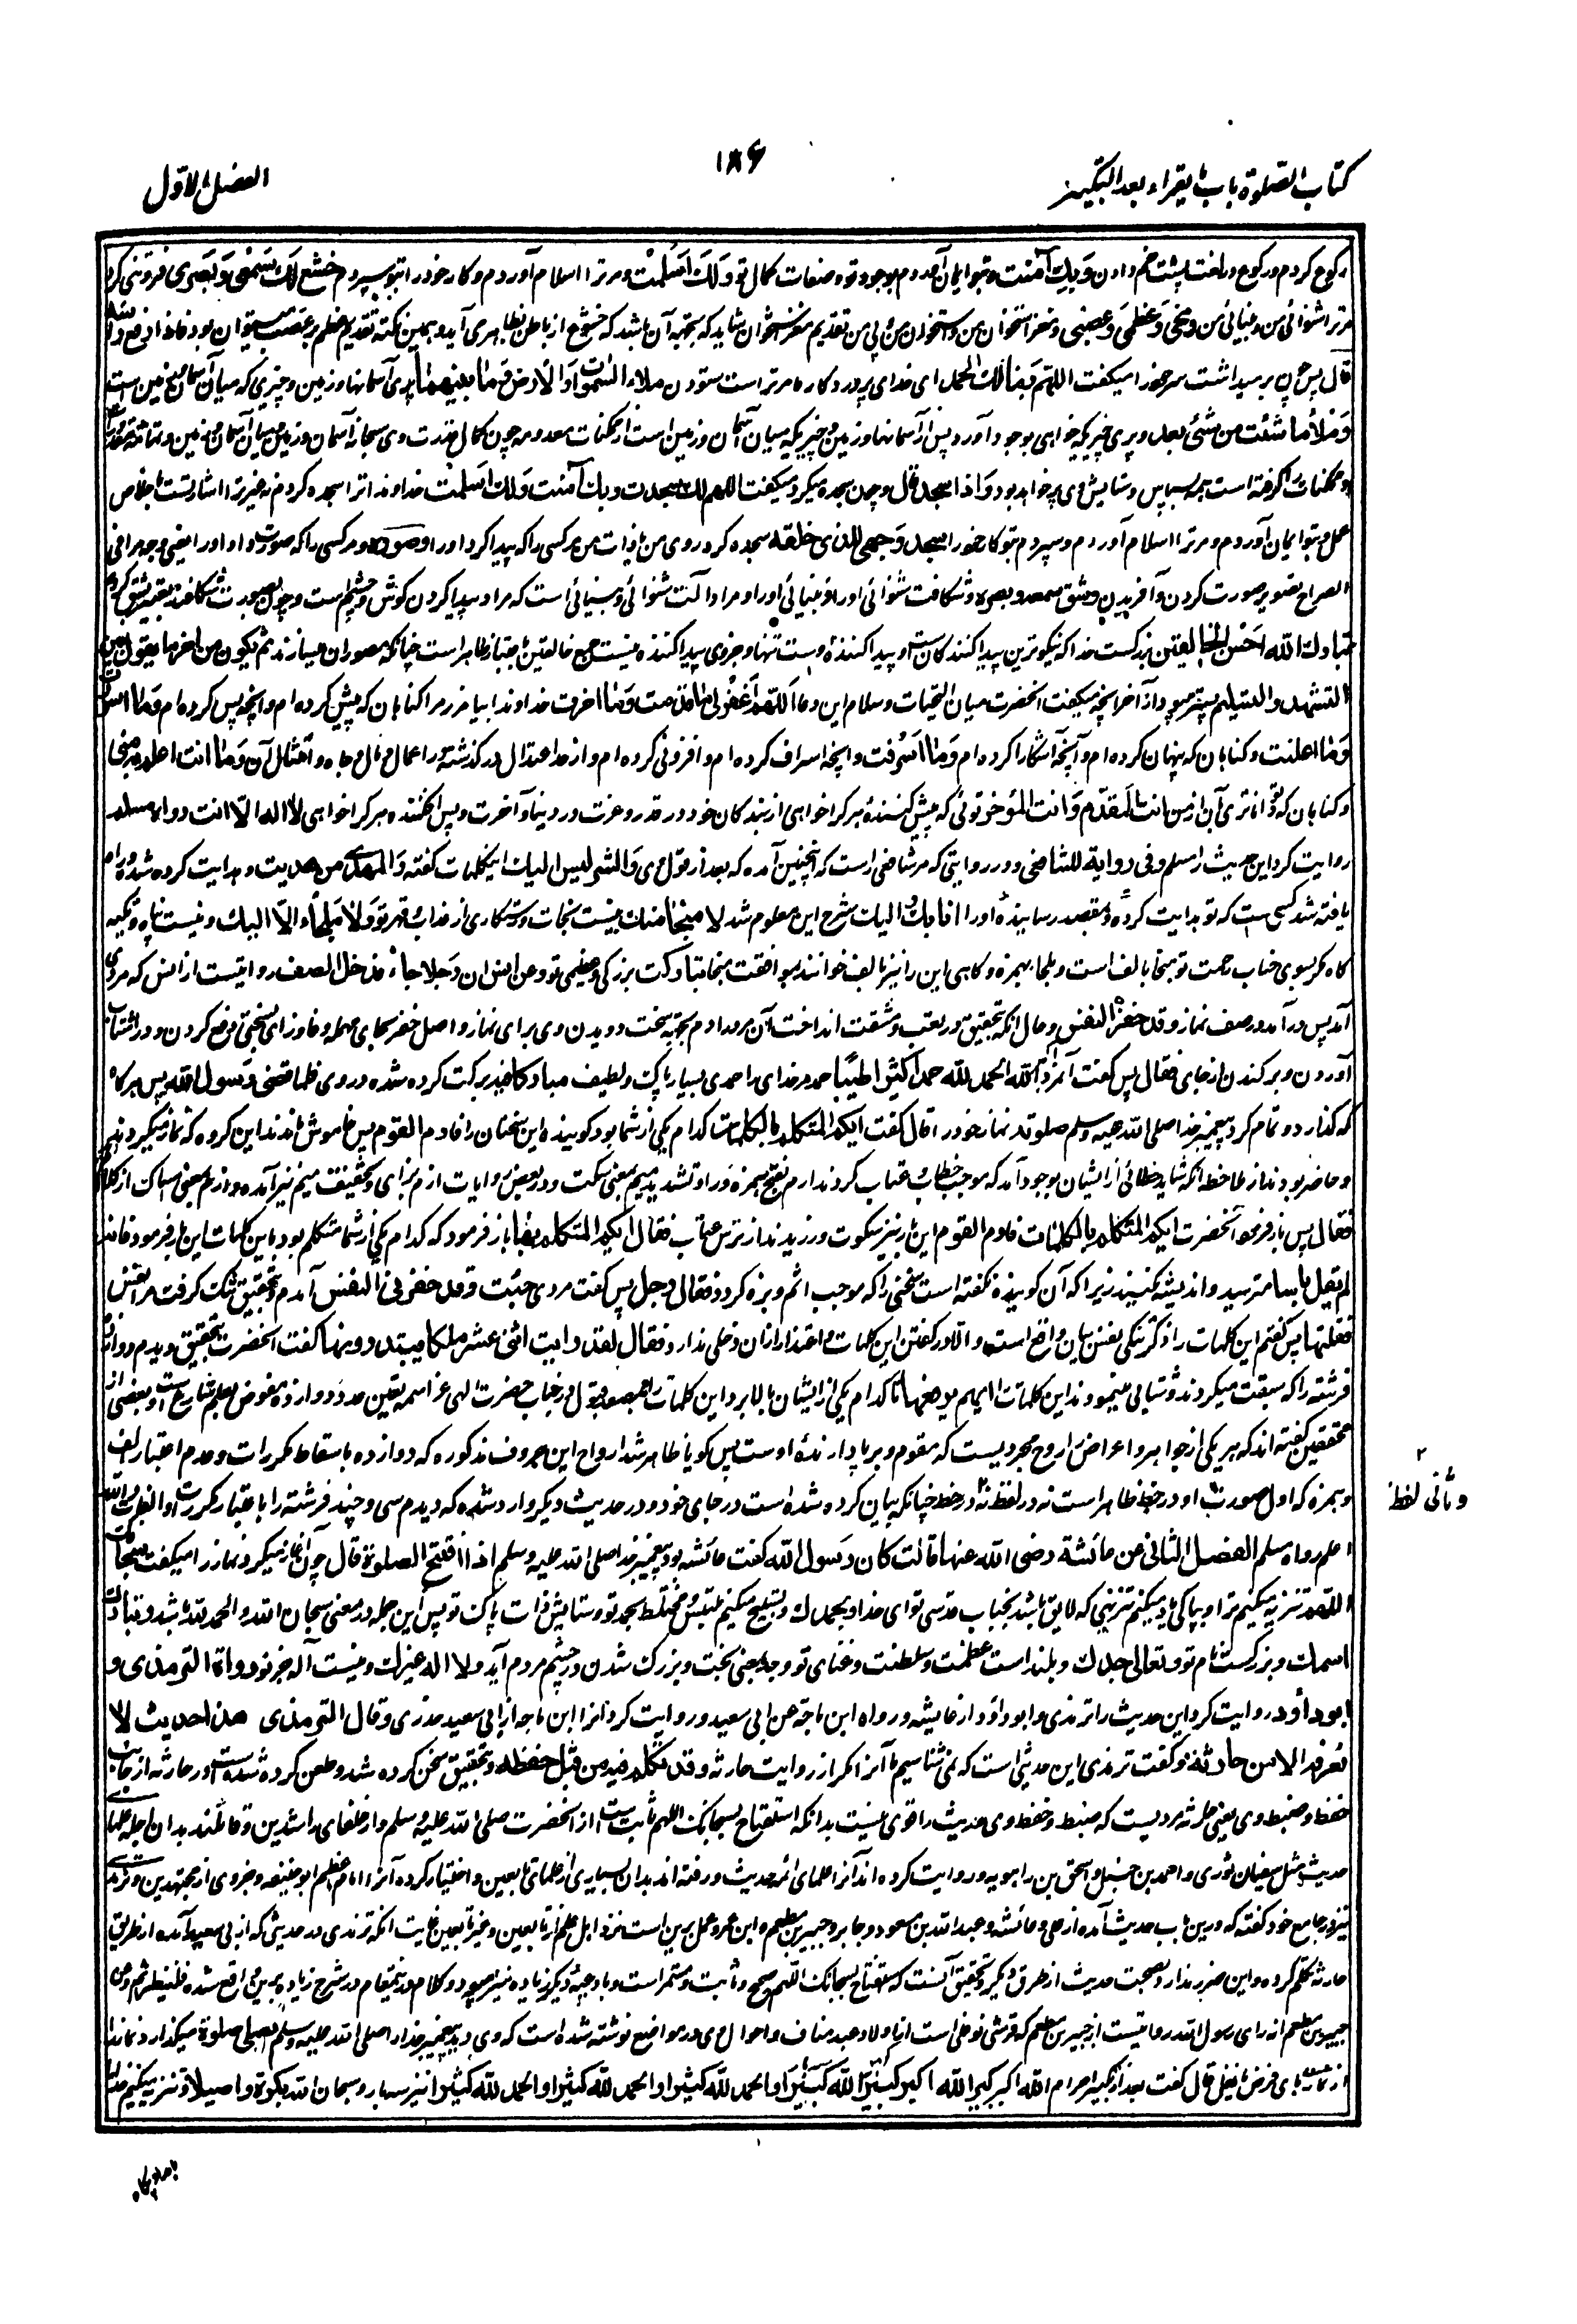 کتاب الصلوة باب ما یقراء بعد التکبیر
۱۸۶
الفصل الاول
رکوع کردم و رکوع در لغت پشت خم دادن وبك آمنت و بتو ایمان آوردم بوجود تو و صفات کمال تو ولك اسلمت و مر ترا اسلام آوردم و کار خود را بتو سپردم خشع لك سمعی وبصری فروتنی کرد
مر ترا شنوائی من و بینائی من ومخی وعظمی وعصبی و مغز استخوان من و استخوان من و پی من تقدیم مغز استخوان شاید که بجهة آن باشد که خشوع از باطن بظاهر می آید و بهمین نکته تقدیم عظم بر عصب میتوان بود فاذا رفع راسه
قال پس چون بر میداشت سر خود را میگفت اللهم ربنا لك الحمد ای خدای پروردگار ما مر تراست ستودن ملاء السموات والارض وما بینهما پری آسمانها و زمین و چیزی که میان آسمان و زمین است
وملأ ما شئت من شئی بعد و پری چیزیکه خواهی بوجود آورد پس از آسمانها و زمین و چیزیکه میان آسمان و زمین است از ممکنات معدومه چون کمال قدرت وی سبحانه آسمان و زمین و میان آسمان و زمین و تمامه
و ممکنات را گرفته است همه سپاس و ستایش وی پر خواهد بود واذا سجد قال و چون سجده میکرد میگفت اللهم لك سجدت وبك آمنت ولك اسلمت خداوندا ترا سجده کردم نه غیر ترا اشارتست باخلاص
عمل و بتو ایمان آوردم و مر ترا اسلام آوردم و سپردم بتو کار خود را سجد وجهی للذی خلقه سجده کرد روی من یا ذات من مر کسی را که پیدا کرد او را وصوره و مر کسی را که صورت داد او را یعنی وجه را فی
الصراح تصویر صورت کردن و آفریدن وشق سمعه وبصره و شکافت شنوائی او را و بینائی او را و مراد آلت شنوائی و بینائی است که مراد پیدا کردن گوش و چشم است و چون بصورت شگافتند تعبیر بشق کرد
تبارك الله احسن الخالقین بزرگست خدا که نیکوترین پیدا کنندگان است و پیدا کننده اوست تنها و جز وی پیدا کننده نیست جمع خالقین باعتبار ظاهر است چنانکه مصوران میسازند ثم یکون من آخر ما یقول بین
التشهد والتسلیم پستر میبود از آخر آنچه میگفت آنحضرت میان التحیات و سلام این دعا اللهم اغفرلی ما قدمت وما اخرت خداوندا بیامرز مرا گناهان که پیش کرده ام و آنچه پس کرده ام وما اسررت
وما اعلنت و گناهان که پنهان کرده ام و آنچه آشکارا کرده ام وما اسرفت و آنچه اسراف کرده ام و افزونی کرده ام و از حد اعتدال در گذشته در اعمال و مال و جاه و امثال آن وما انت اعلم به منی
و گناهان که تو داناتری آن از من انت المقدم وانت المؤخر توئی که پیش کننده هر کرا خواهی از بندگان خود در قدر و عزت در دنیا و آخرت و پس افگننده هر کرا خواهی لا اله الا انت رواه مسلم
روایت کرد این حدیث را مسلم وفی روایة للشافعی و در روایتی که مر شافعی راست که آنچنین آمده که بعد از قول وی والشر لیس الیك اینکلمات گفته والمهدی من هدیت و هدایت کرده شده و راه
یافته شد کسی ست که تو هدایت کردۀ و بمقصد رسانیدۀ او را انا بك والیك شرح این معلوم شد لا منجا منك نیست نجات و رستگاری از عذاب و قهر تو ولا ملجاء الا الیك و نیست پناه و تکیه
گاه مگر بسوی جناب رحمت تو منجا بالف است و ملجا بهمزه و گاهی این را نیز بالف خوانند بموافقت منجا تبارکت بزرگی و عظیمی تو وعن انس ان رجلا جاء فدخل الصف روایتست از انس که مردی
آمد پس در آمد در صف نماز وقد حفزه النفس و حال آنکه بتحقیق در تعب و مشقت انداخت آن مرد را دم بجهة سخت دویدن وی برای نماز و اصل حفز بحای مهمله و فا و زای بسختی دفع کردن و در اشتاب
آوردن و بر کندن از جای فقال پس گفت آنمرد الله اکبر الحمد لله حمدا کثیرا طیبا حمد مر خدای را حمدی بسیار پاک و لطیف مبارکا فیه برکت کرده شده در وی فلما قضی رسول الله پس هرگاه
که گذارد و تمام کرد پیغمبر خدا صلی الله علیه وسلم صلوته نماز خود را قال گفت ایکم المتکلم بالکلمات کدام یکی از شما بود گوینده این سخنان را فارم القوم پس خاموش ماندند این گروه که نماز میگزاردند
و حاضر بودند از ملاحظه آنکه شاید خطائی از ایشان بوجود آمد که موجب خطاب و عتاب گردند ارم بفتح همزه و را و تشدید میم بمعنی سکت و در بعض روایات ازم بزای و تخفیف میم نیز آمده و ازم بمعنی امساک از کلام
فقال پس باز فرمود آنحضرت ایکم المتکلم بالکلمات فارم القوم این بار نیز سکوت ورزیدند از ترس عتاب فقال ایکم المتکلم بها باز فرمود که کدام یکی از شما متکلم بود باین کلمات این بار فرمود فانه
لم یقل باسا مترسید و اندیشه مکنید زیرا که آن گوینده نگفته است سخنی را که موجب اثم و بزه گردد فقال رجل پس گفت مردی جئت وقد حفزنی النفس آمدم و بتحقیق تنگ گرفت مرا نفس
فقلتها پس گفتم این کلمات را ذکر تنگی نفس بیان واقع است و الا در گفتن این کلمات و اعتذار ازان دخلی ندارد فقال لقد رایت اثنی عشر ملکا یبتدرونها گفت آنحضرت بتحقیق دیدم دوازده
فرشته را که سبقت میکردند و شتابی مینمودند این کلمات را ایهم یرفعها تا کدام یکی از ایشان بالا برد این کلمات را بمصعد قبول در جناب حضرت الهی عز اسمه تعین عدد دوازده مفوض بعلم شارع ست و بعضی از
محققین گفته اند که هر یکی از جواهر و اعراض را روح مجردیست که مقوم و بر پا دارندۀ اوست پس گویا ظاهر شد ارواح این حروف مذکوره که دوازده باسقاط مکررات و عدم اعتبار الف
و همزه که اول صورت او در خط ظاهر است نه در لفظ نه در خط چنانکه بیان کرده شده است در جای خود و در حدیث دیگر وارد شده که دیدم سی و چند فرشته را باعتبار مکررات او الله
اعلم رواه مسلم الفصل الثانی عن عائشة رضی الله عنها قالت کان رسول الله گفت عائشه بود پیغمبر خدا صلی الله علیه وسلم اذا افتتح الصلوة قال چون آغاز میکرد نماز را میگفت سبحانك
اللهم تنزیه میکنیم ترا و بپاکی یاد میکنیم تنزیهی که لایق باشد بجناب قدسی تو ای خدا وبحمدك و تسبیح میکنیم متلبس و مختلط بحمد تو و ستایش ذات پاک تو پس این جمله در معنی سبحان الله والحمد لله باشد وتبارك
اسمك و بزرگست نام تو وتعالی جدك و بلند است عظمت و سلطنت و غنای تو و جد بمعنی بخت و بزرگ شدن در چشم مردم آید ولا اله غیرك و نیست اله جز تو رواه الترمذی و
ابوداؤد روایت کرد این حدیث را ترمذی و ابوداود از عایشه ورواه ابن ماجة عن ابی سعید و روایت کرد آنرا ابن ماجه از ابی سعید خدری وقال الترمذی هذا حدیث لا
نعرفه الا من حارثة و گفت ترمذی این حدیثی است که نمی شناسیم ما آنرا مگر از روایت حارثه وقد تکلم فیه من قبل حفظه و بتحقیق سخن کرده شد و طعن کرده شده است در حارثه از جانب
حفظ و ضبط وی یعنی حارثه مردیست که ضبط و حفظ وی حدیث را قوی نیست بدانکه استفتاح بسبحانک اللهم ثابت است از آنحضرت صلی الله علیه وسلم و از خلفای راشدین و قائلند بدان اجله علمای
حدیث مثل سفیان ثوری و احمد بن حنبل و اسحق بن راهویه و روایت کرده اند آنرا علمای ائمه حدیث و رفته اند بدان بسیاری از علمای تابعین و اختیار کرده آنرا امام اعظم ابو حنیفه و جز وی از مجتهدین و ترمذی
نیز در جامع خود گفته که درین باب حدیث آمده از علی و عائشه و عبدالله بن مسعود و جابر و جبیر بن مطعم و ابن عمر و عمل برین است نزد اهل علم از تابعین و غیر تابعین غایت آنکه ترمذی در حدیثی که از ابی سعید آمده از طریق
حارثه تکلم کرده و این ضرر ندارد بصحت حدیث از طرق دیگر و تحقیق آنست که استفتاح بسبحانک اللهم صحیح و ثابت و مستمر است و بادعیه دیگر زیاده نیز میبود و کلام درینمقام در شرح زیاده برین واقع شده فلینظر ثم وعن
جبیر بن مطعم انه رای رسول الله روایتست از جبیر بن مطعم که قرشی نوفلی است از اولاد عبد مناف و احوال وی در مواضع نوشته شده است که وی دید پیغمبر خدا را صلی الله علیه وسلم یصلی صلوة میگذارد نمازیرا
از نمازهای فرض یا نفل قال گفت بعد از تکبیر احرام الله اکبر کبیرا الله اکبر کبیرا الله اکبر کبیرا والحمد لله کثیرا والحمد لله کثیرا والحمد لله کثیرا نیز سه بار وسبحان الله بکرة واصیلا و تنزیه میکنیم خدا را
و ثانی لفظ